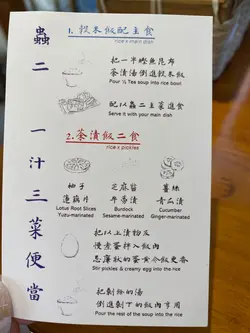 蟲二 一汁三菜便當
1. 穀米飯配主食
rice & main dish
把一半鰹魚昆布
茶漬湯倒進穀米飯
Pour ½ Tea soup into rice bowl
配以蟲二主菜進食
Serve it with your main dish
2. 茶漬飯二食
rice & pickles
柚子 芝麻 薑絲
蓮藕片 牛蒡漬 青瓜漬
Lotus Root Slices Burdock Cucumber
Yuzu-marinated Sesame-marinated Ginger-marinated
把以上漬物及
慢煮蛋拌入飯內
忌廉狀的蛋黃令飯更香
Stir pickles & creamy egg into the rice
把剩餘的湯
倒進剩下的飯內享用
Pour the rest of the soup into the rice